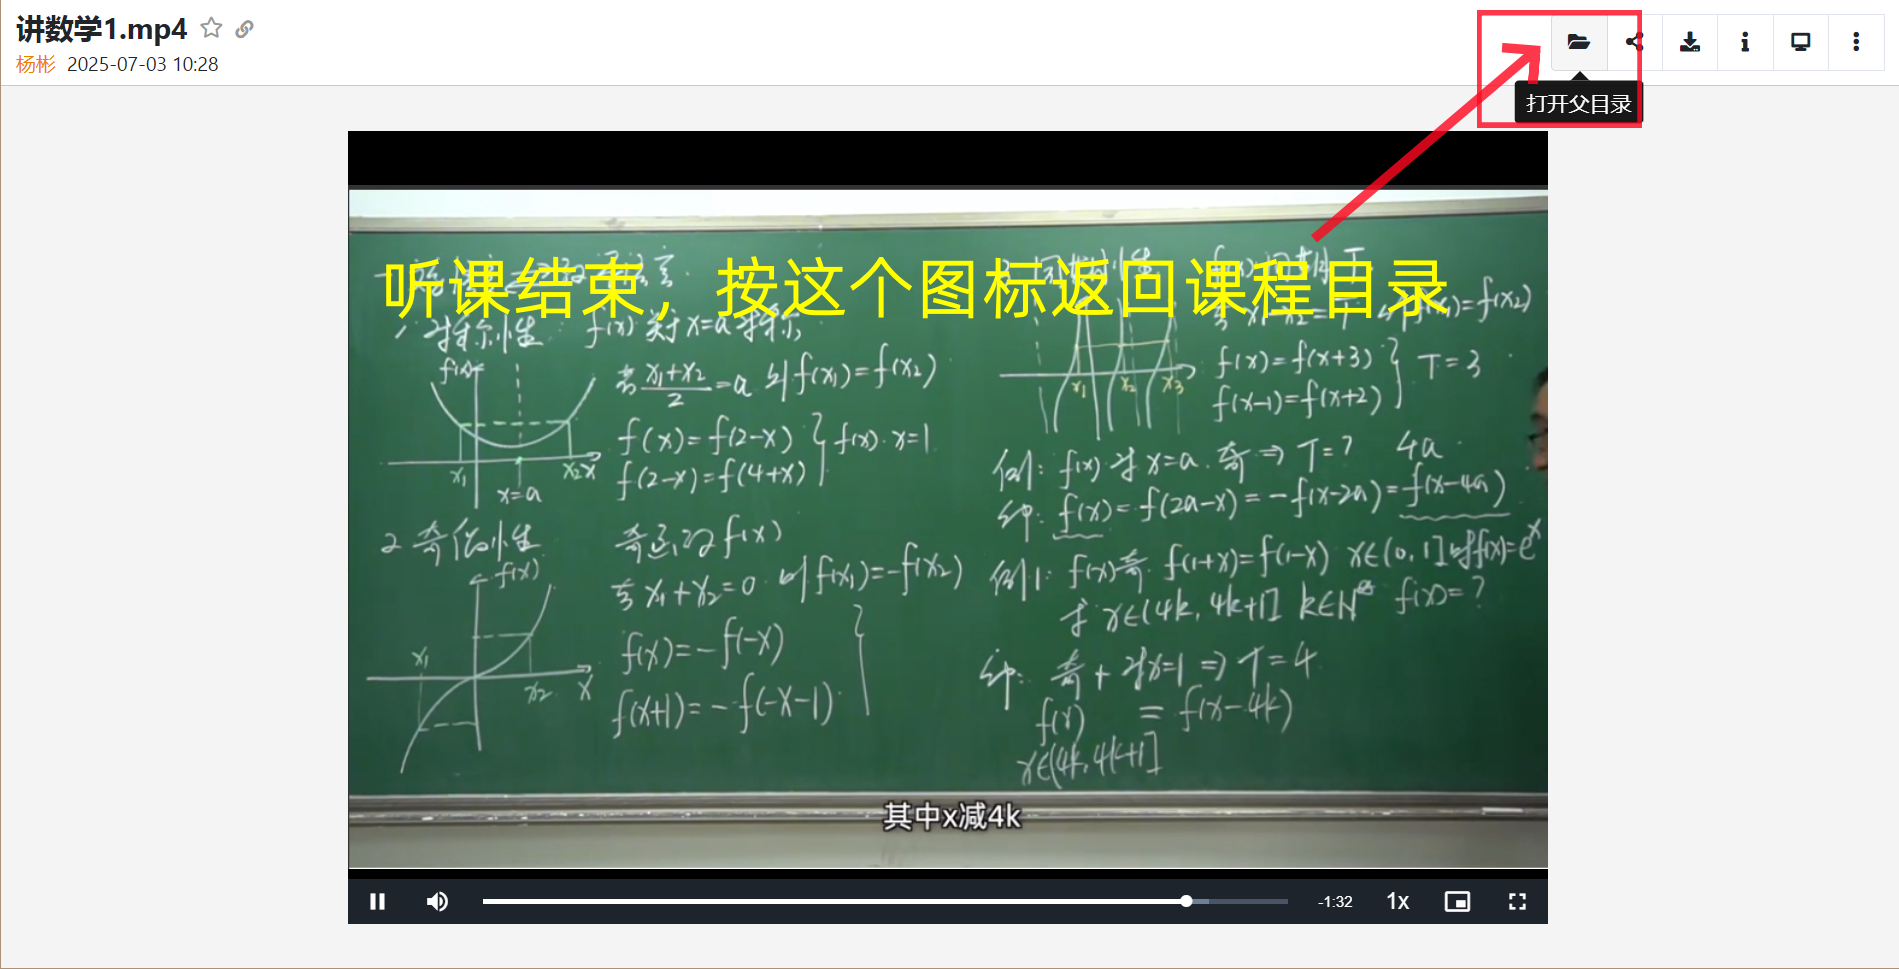 讲数学1.mp4
杨彬 2025-07-03 10:28
打开父目录
听课结束，按这个图标返回课程目录
1、对称性 f(x)关于x=a对称
f(x)
若 x₁+x₂/2 =a 则f(x₁)=f(x₂)
f(x)=f(2-x) } f(x)·x=1
f(2-x)=f(4+x)
x₁ x₂ x
x=a
2 奇偶性 奇函数f(x)
f(x)
若x₁+x₂=0 则f(x₁)=-f(x₂)
f(x)=-f(-x)
x₁ x₂ x
f(x+1)=-f(-x-1)
若 x₁-x₂=T 则f(x₁)=f(x₂)
x₁ x₂ x₃
f(x)=f(x+3) } T=3
f(x-1)=f(x+2)
例: f(x)对x=a.奇⇒T=? 4a
解: f(x)=f(2a-x)=-f(x-2a)=f(x-4a)
例1: f(x)奇. f(1+x)=f(1-x) x∈(0,1]时f(x)=eˣ
求 x∈(4k,4k+1] k∈N* f(x)=?
解: 奇+对x=1⇒T=4
f(x) = f(x-4k)
x∈(4k,4k+1]
其中x减4k
-1:32 1x